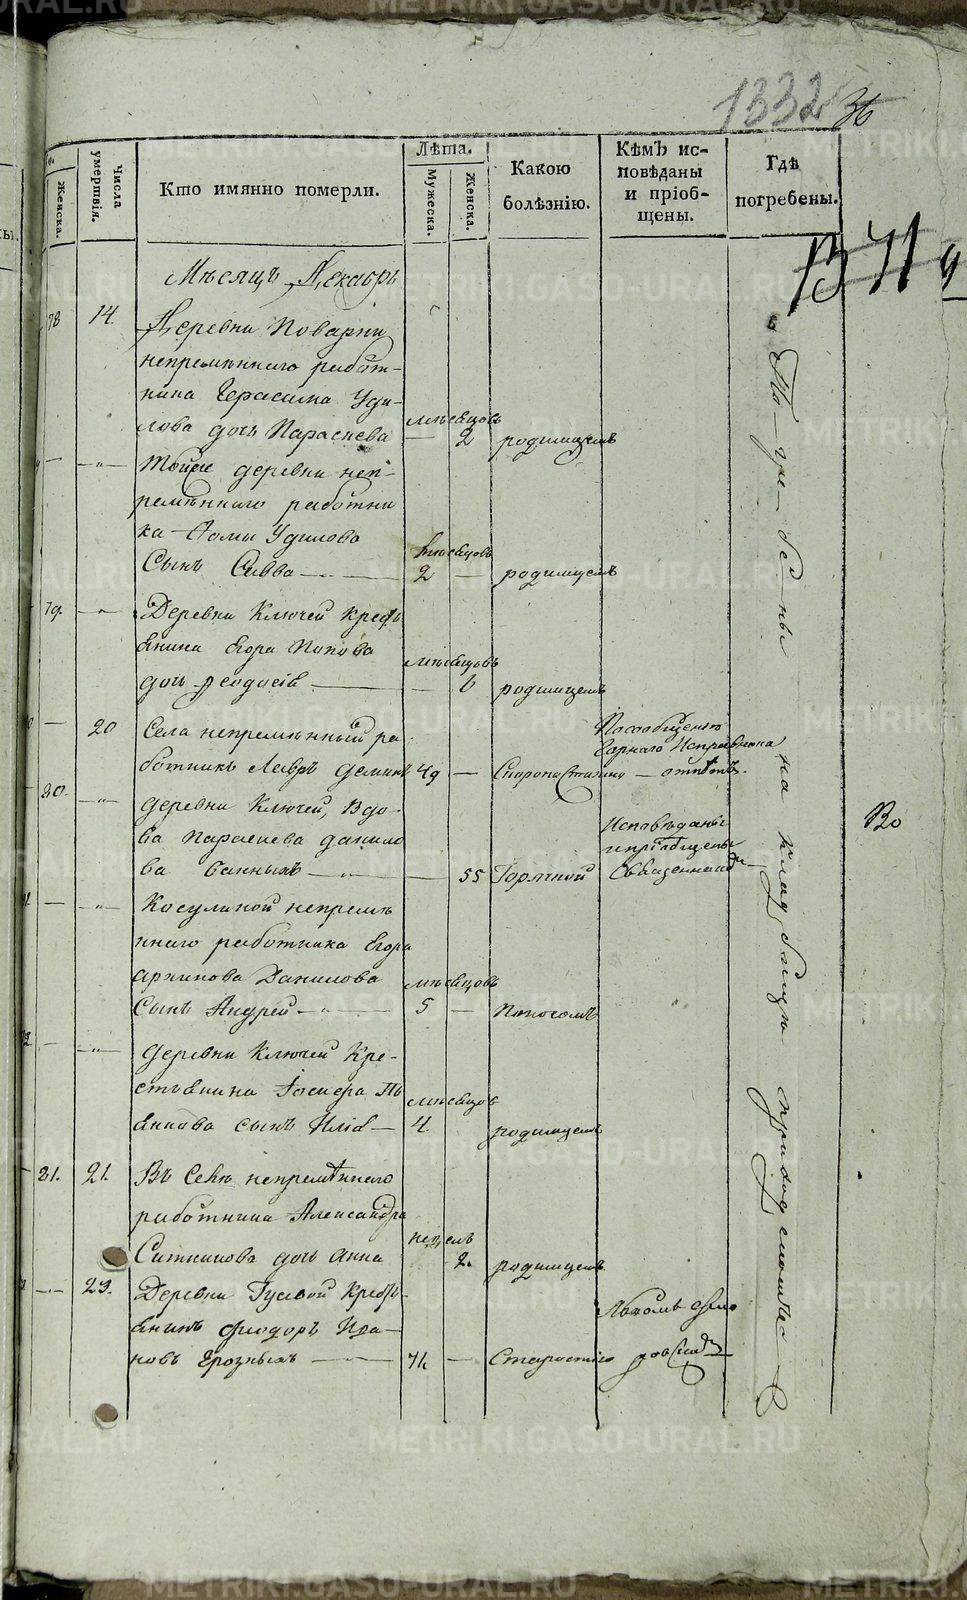 1332 36
Женска.
Числа умершвія.
Кто имянно померли.
Лѣта.
Мужеска.
Женска.
Какою болѣзнію.
Кѣмъ исповѣданы и пріобщены.
Гдѣ погребены.
Мѣсяцъ Декабрь
1371
78 14. Деревни Поварни
непремѣннаго работ-
ника Герасима Уди-
лова дочь Параскева мѣсяцовъ 2 родимцемъ
Тойже деревни неп-
ремѣннаго работни
ка Фомы Удилова
Сынъ Савва мѣсяцовъ 2 — родимцемъ
79. Деревни Ключей Кресть
янина Егора Попова
дочь Феодосія мѣсяцовъ — 6 родимцемъ
20 Села непремѣнный ра
ботникъ Лавръ Деминъ 49 — Скоропостижно
По сообщенію
Горнаго Исправника
— отпѣтъ.
80. деревни Ключей, Вдо-
ва Параскева данило
ва — 55 Горячкой
Исповѣданы
и пріобщены
Священнико
Косулиной непремѣ
ннаго работника Егора
Данилова
Сынъ Андрей мѣсяцовъ 5 — Поносомъ
деревни Ключей Кре-
стьянина
сынъ Илія мѣсяцов 4. родимцемъ
81. 21. Въ Селѣ непремѣннаго
работника Александра
Ситникова дочь Анна недѣль 2. родимцемъ
23. Деревни Гусевой Кресть-
янинъ Феодоръ Ива-
новъ Грозныхъ — Старостію
Погребены на кладбищѣ приходскомъ
Во
METRIKI.GASO-URAL.RU